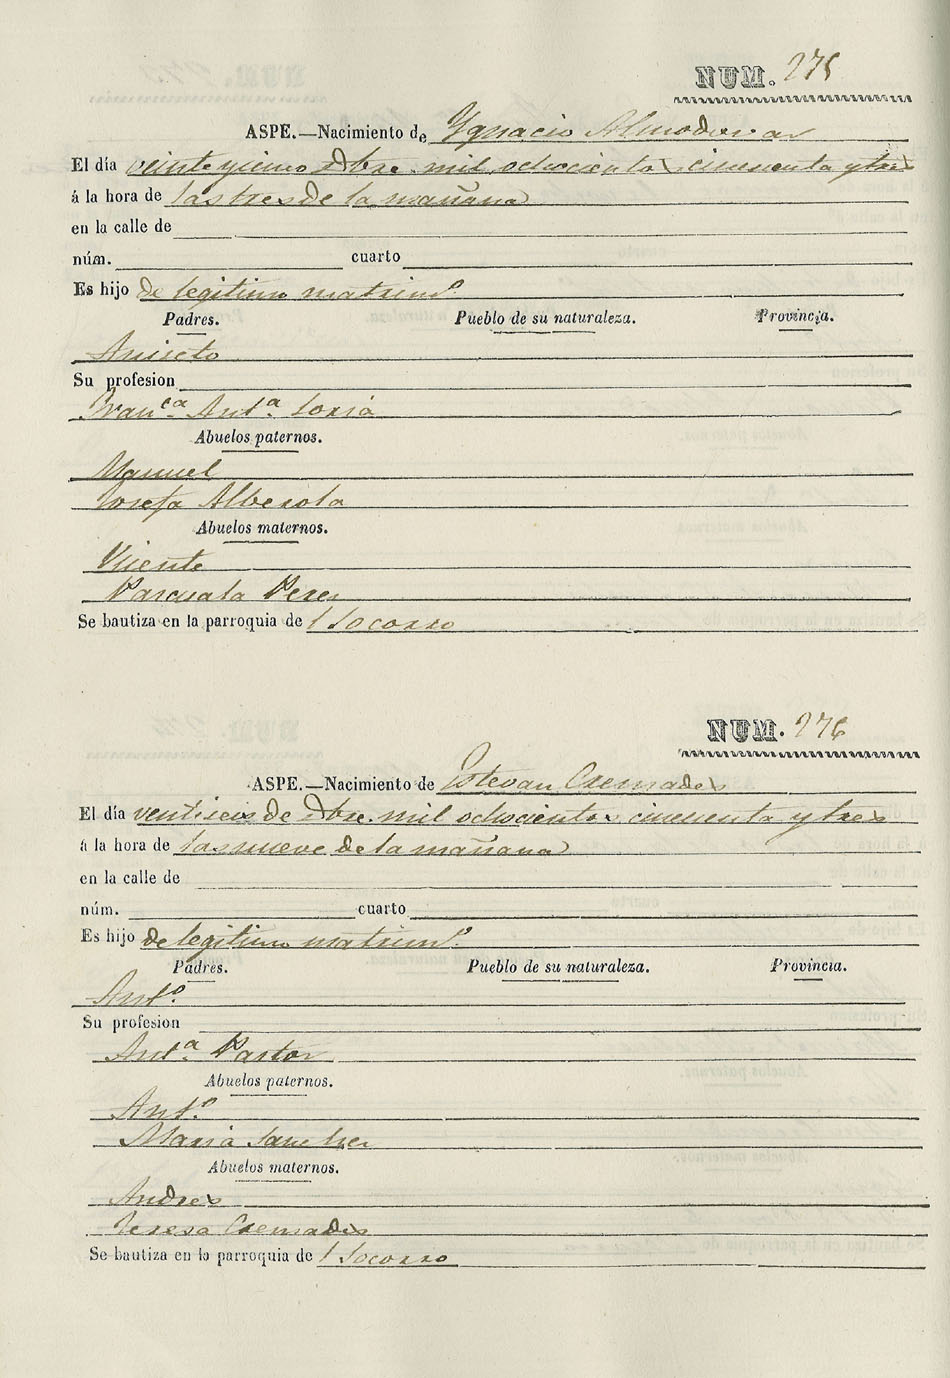 NUM. 275
ASPE.—Nacimiento de Ygnacio Almodovar
El día veinte y cinco Dbre. mil ochocientos cincuenta y tres
á la hora de las tres de la mañana
en la calle de
núm. cuarto
Es hijo de legitimo matrimº.
Padres. Pueblo de su naturaleza. Provincia.
Aniceto
Su profesion
Franca. Anta. Soria
Abuelos paternos.
Manuel
Josefa Alberola
Abuelos maternos.
Vicente
Pascuala Perez
Se bautiza en la parroquia de l Socorro
NUM. 276
ASPE.—Nacimiento de Estevan Cremades
El día ventiseis de Dbre. mil ochocientos cincuenta y tres
á la hora de las nueve de la mañana
en la calle de
núm. cuarto
Es hijo de legitimo matrimº.
Padres. Pueblo de su naturaleza. Provincia.
Antº.
Su profesion
Anta. Pastor
Abuelos paternos.
Antº.
Maria Sanchez
Abuelos maternos.
Andres
Teresa Cremades
Se bautiza en la parroquia de l Socorro